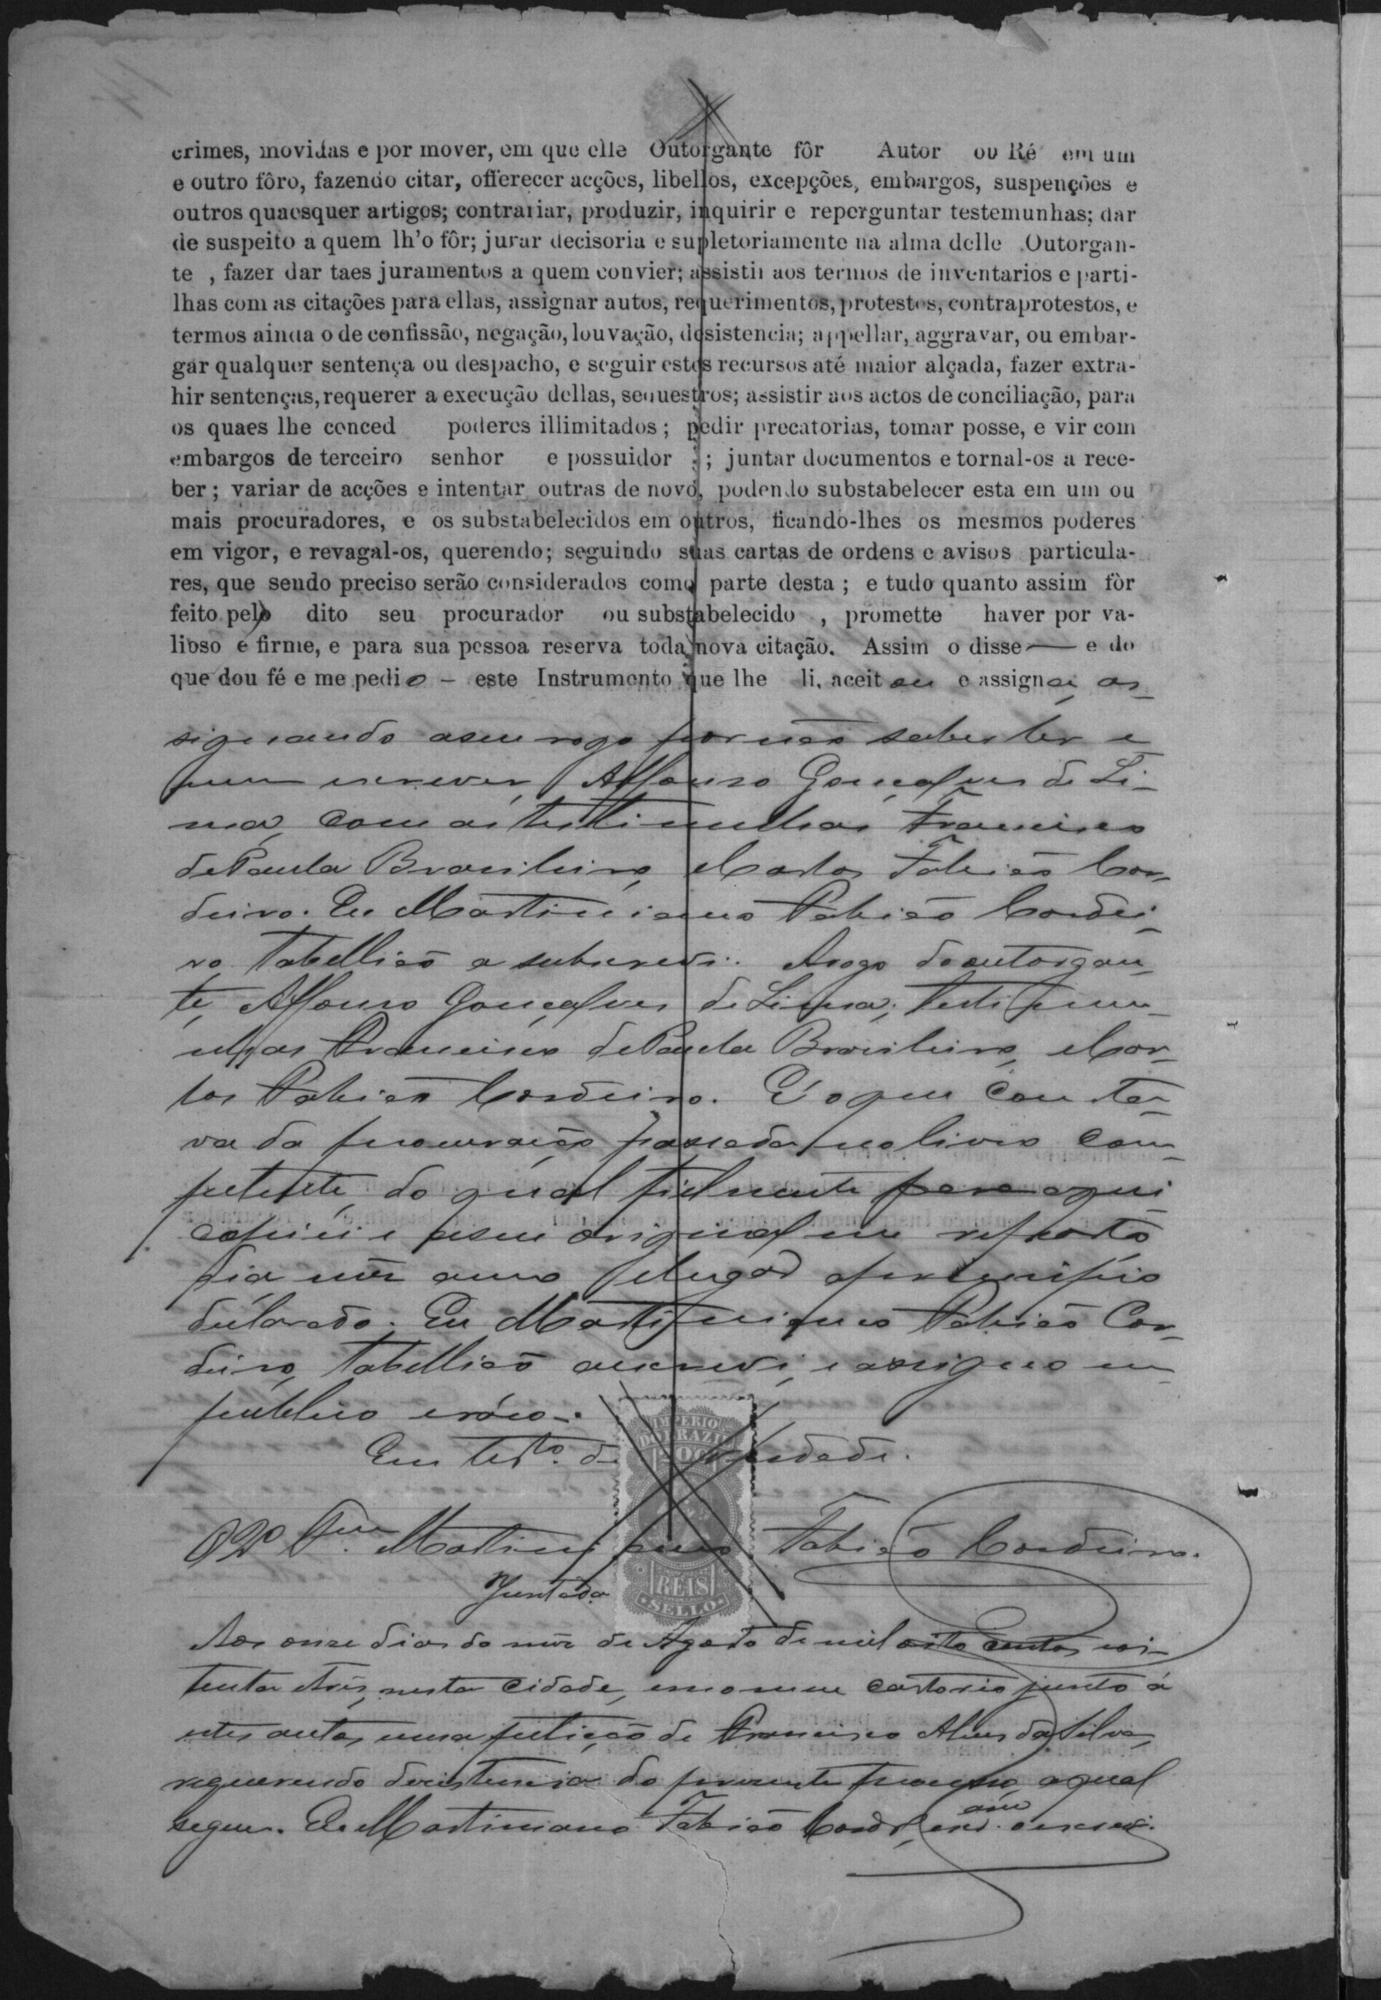 crimes, movidas e por mover, em que elle Outorgante fôr Autor ou Ré em um
e outro fôro, fazendo citar, offerecer acções, libellos, excepções, embargos, suspenções e
outros quaesquer artigos; contrariar, produzir, inquirir e reperguntar testemunhas; dar
de suspeito a quem lh'o fôr; jurar decisoria e supletoriamente na alma delle Outorgan-
te , fazer dar taes juramentos a quem convier; assistir aos termos de inventarios e parti-
lhas com as citações para ellas, assignar autos, requerimentos, protestos, contraprotestos, e
termos ainda o de confissão, negação, louvação, desistencia; appellar, aggravar, ou embar-
gar qualquer sentença ou despacho, e seguir estes recursos até maior alçada, fazer extra-
hir sentenças, requerer a execução dellas, sequestros; assistir aos actos de conciliação, para
os quaes lhe conced poderes illimitados ; pedir precatorias, tomar posse, e vir com
embargos de terceiro senhor e possuidor ; juntar documentos e tornal-os a rece-
ber ; variar de acções e intentar outras de novo, podendo substabelecer esta em um ou
mais procuradores, e os substabelecidos em outros, ficando-lhes os mesmos poderes
em vigor, e revagal-os, querendo; seguindo suas cartas de ordens e avisos particula-
res, que sendo preciso serão considerados como parte desta ; e tudo quanto assim fôr
feito pelo dito seu procurador ou substabelecido , promette haver por va-
lioso e firme, e para sua pessoa reserva toda nova citação. Assim o disse — e do
que dou fé e me pedio – este Instrumento que lhe li, aceitou e assignou, as-
signando a seu rogo por não saber ler e
nem escrever, Affonso Gonçalves de Li-
ma, com as testimunhas Francisco
de Paula Brasileiro, e Carlos Fabião Cor-
deiro. Eu Martiniano Fabião Cordei-
ro, Tabellião a subscrevi. Arogo do outorgan-
te, Affonso Gonçalves de Lima; Testimu-
nhas Francisco de Paula Brasileiro, e Car-
los Fabião Cordeiro. É o que constа-
va da procuração passada no livro com-
petente, do qual fielmente para aqui
copiei e a seu original me reporto
dia mez anno e lugar a principio
declarado. Eu Martiniano Fabião Cor-
deiro, Tabellião a escrevi, e assigno em
publico e rázo.
Em testo. de verdade.
IMPERIO
DO BRAZIL
200
REIS
SELLO
O 2º Tam. Martiniano Fabião Cordeiro.
Juntada
Aos onze dias do mez de Agosto de mil oito centos e oi-
tenta e tres, nesta cidade, em o meu cartorio junto á
estes autos, uma petição de Francisco Alves da Silva,
requerendo desistencia do presente processo, a qual
segue. Eu Martiniano Fabião Cordro., escram. o escrevi.